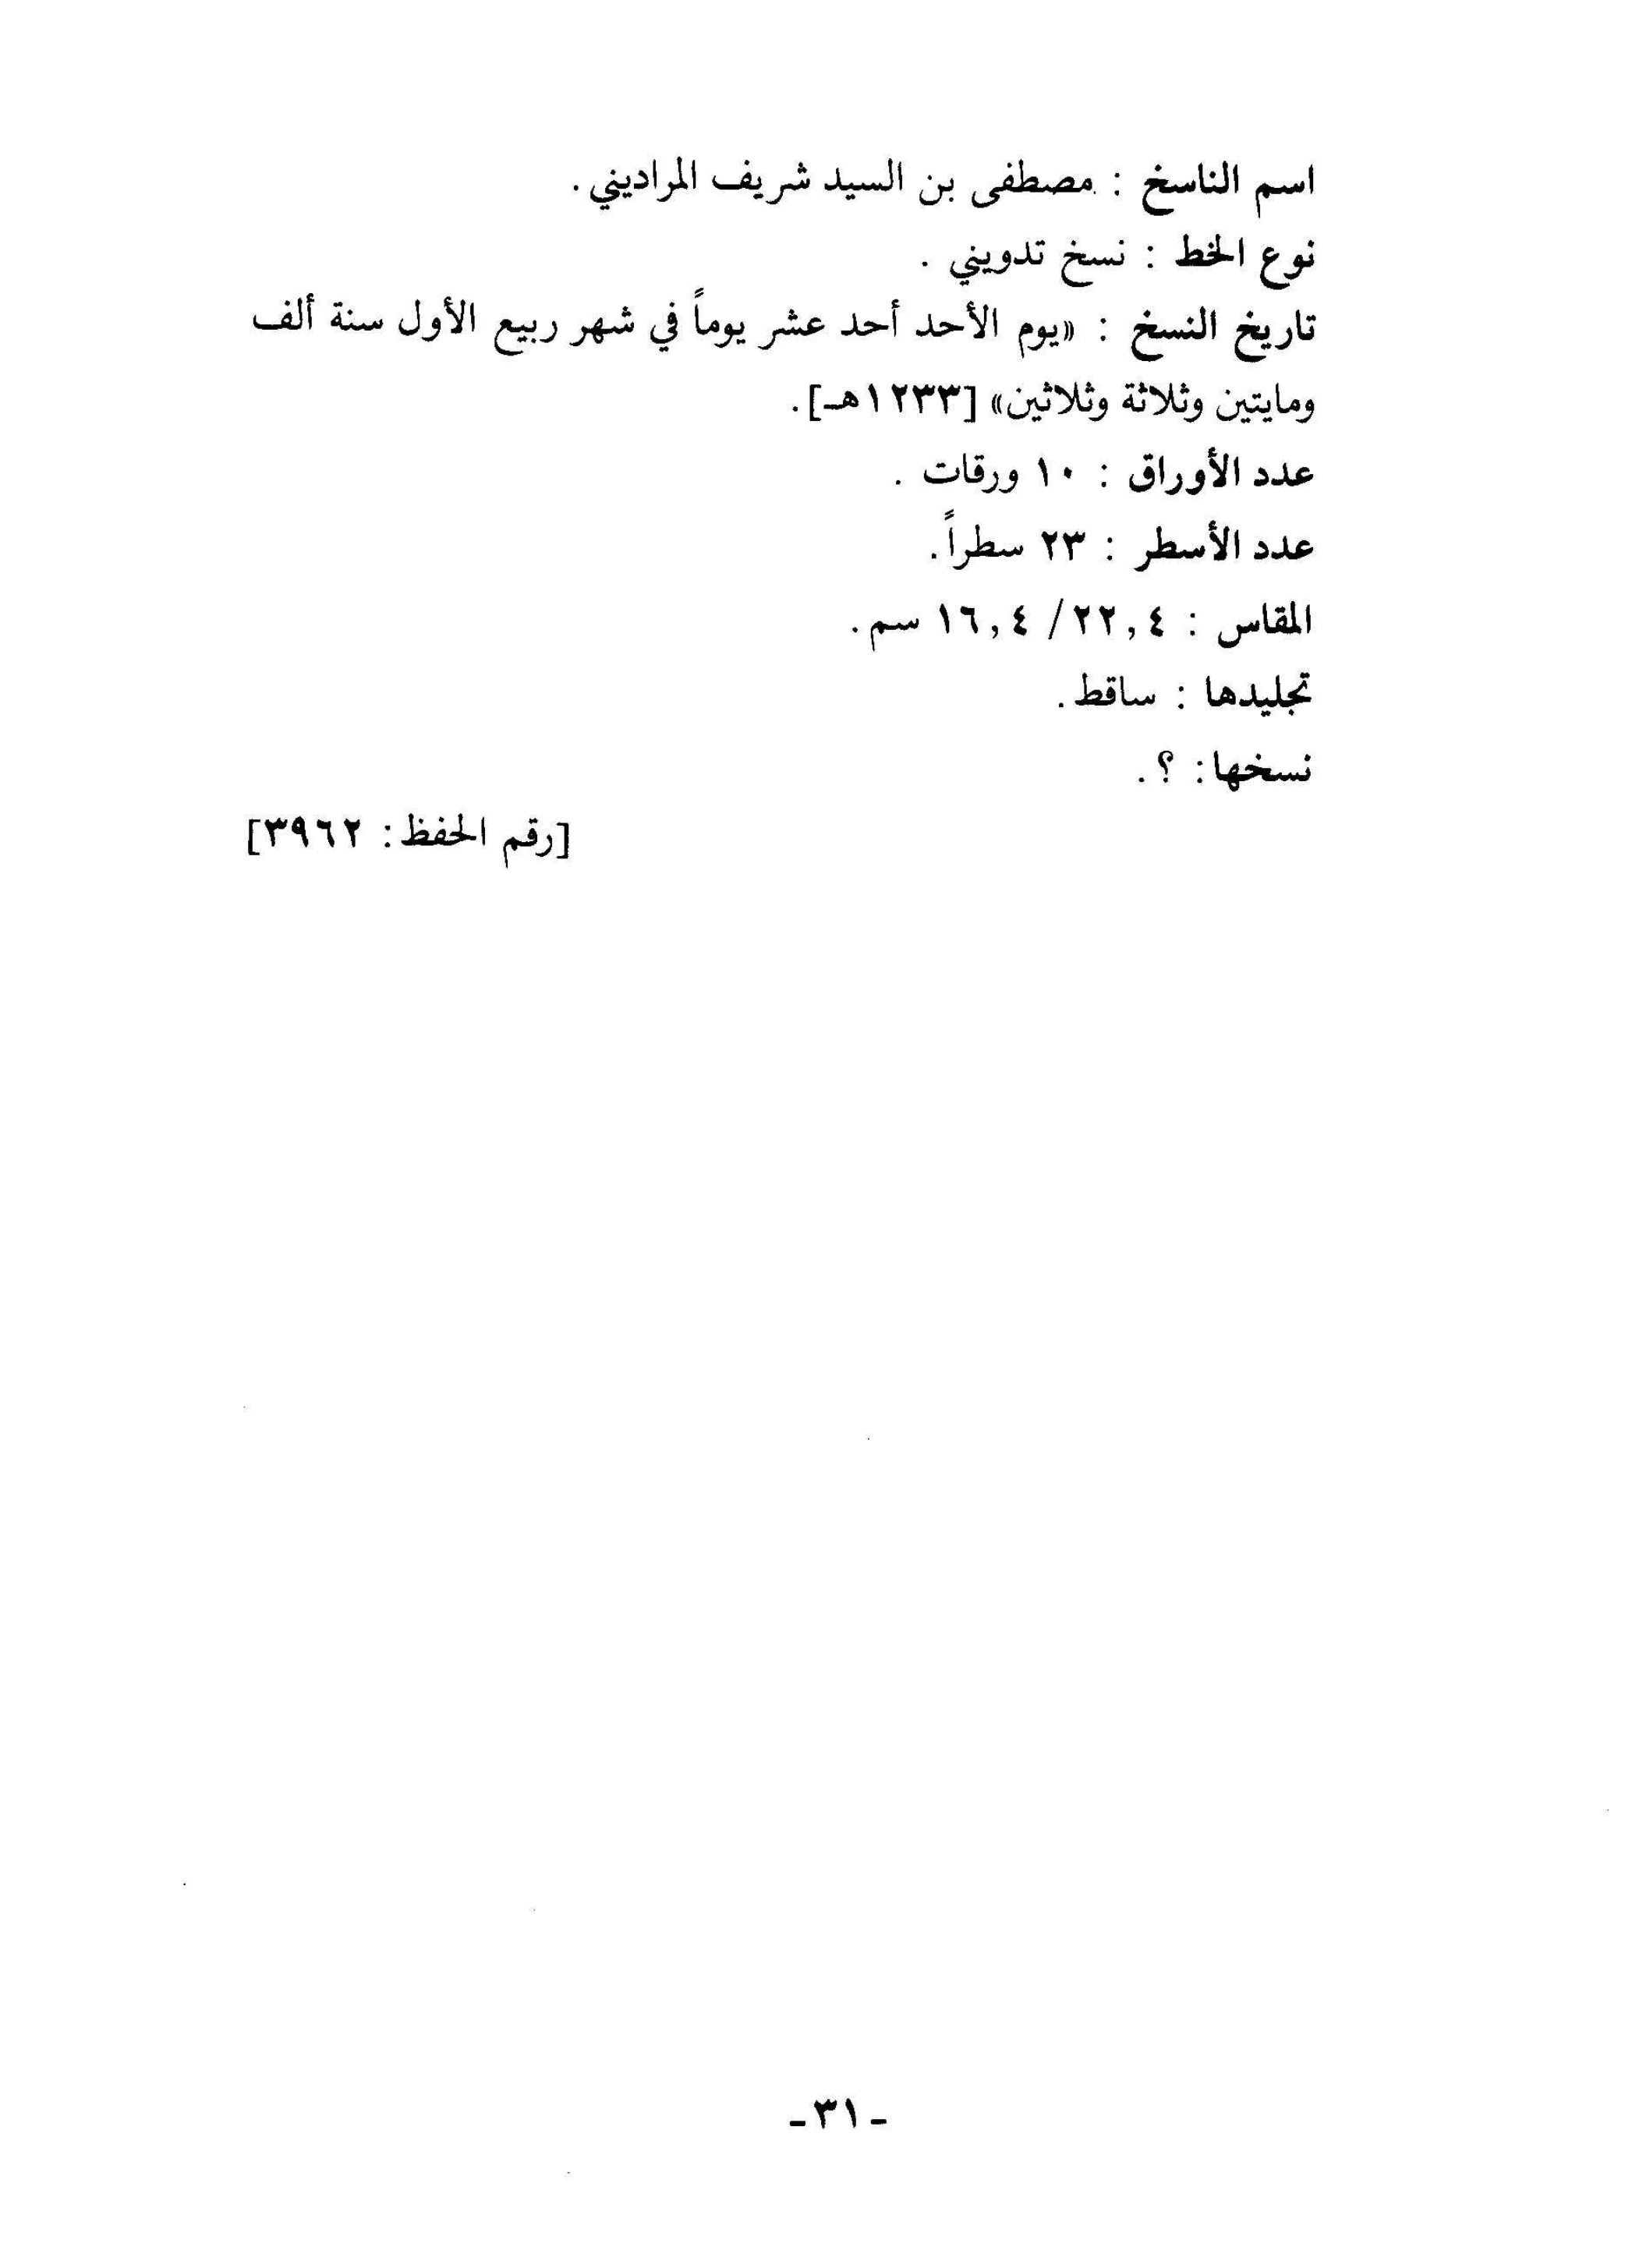 اسم الناسخ : مصطفى بن السيد شريف المراديني.
نوع الخط : نسخ تدويني .
تاريخ النسخ : «يوم الأحد أحد عشر يوماً في شهر ربيع الأول سنة ألف
ومايتين وثلاثة وثلاثين» [١٢٣٣هـ].
عدد الأوراق : ١٠ ورقات .
عدد الأسطر : ٢٣ سطراً.
المقاس : ٢٢,٤/ ١٦,٤ سم.
تجليدها : ساقط.
نسخها: ؟ .
[رقم الحفظ: ٣٩٦٢]
-٣١-